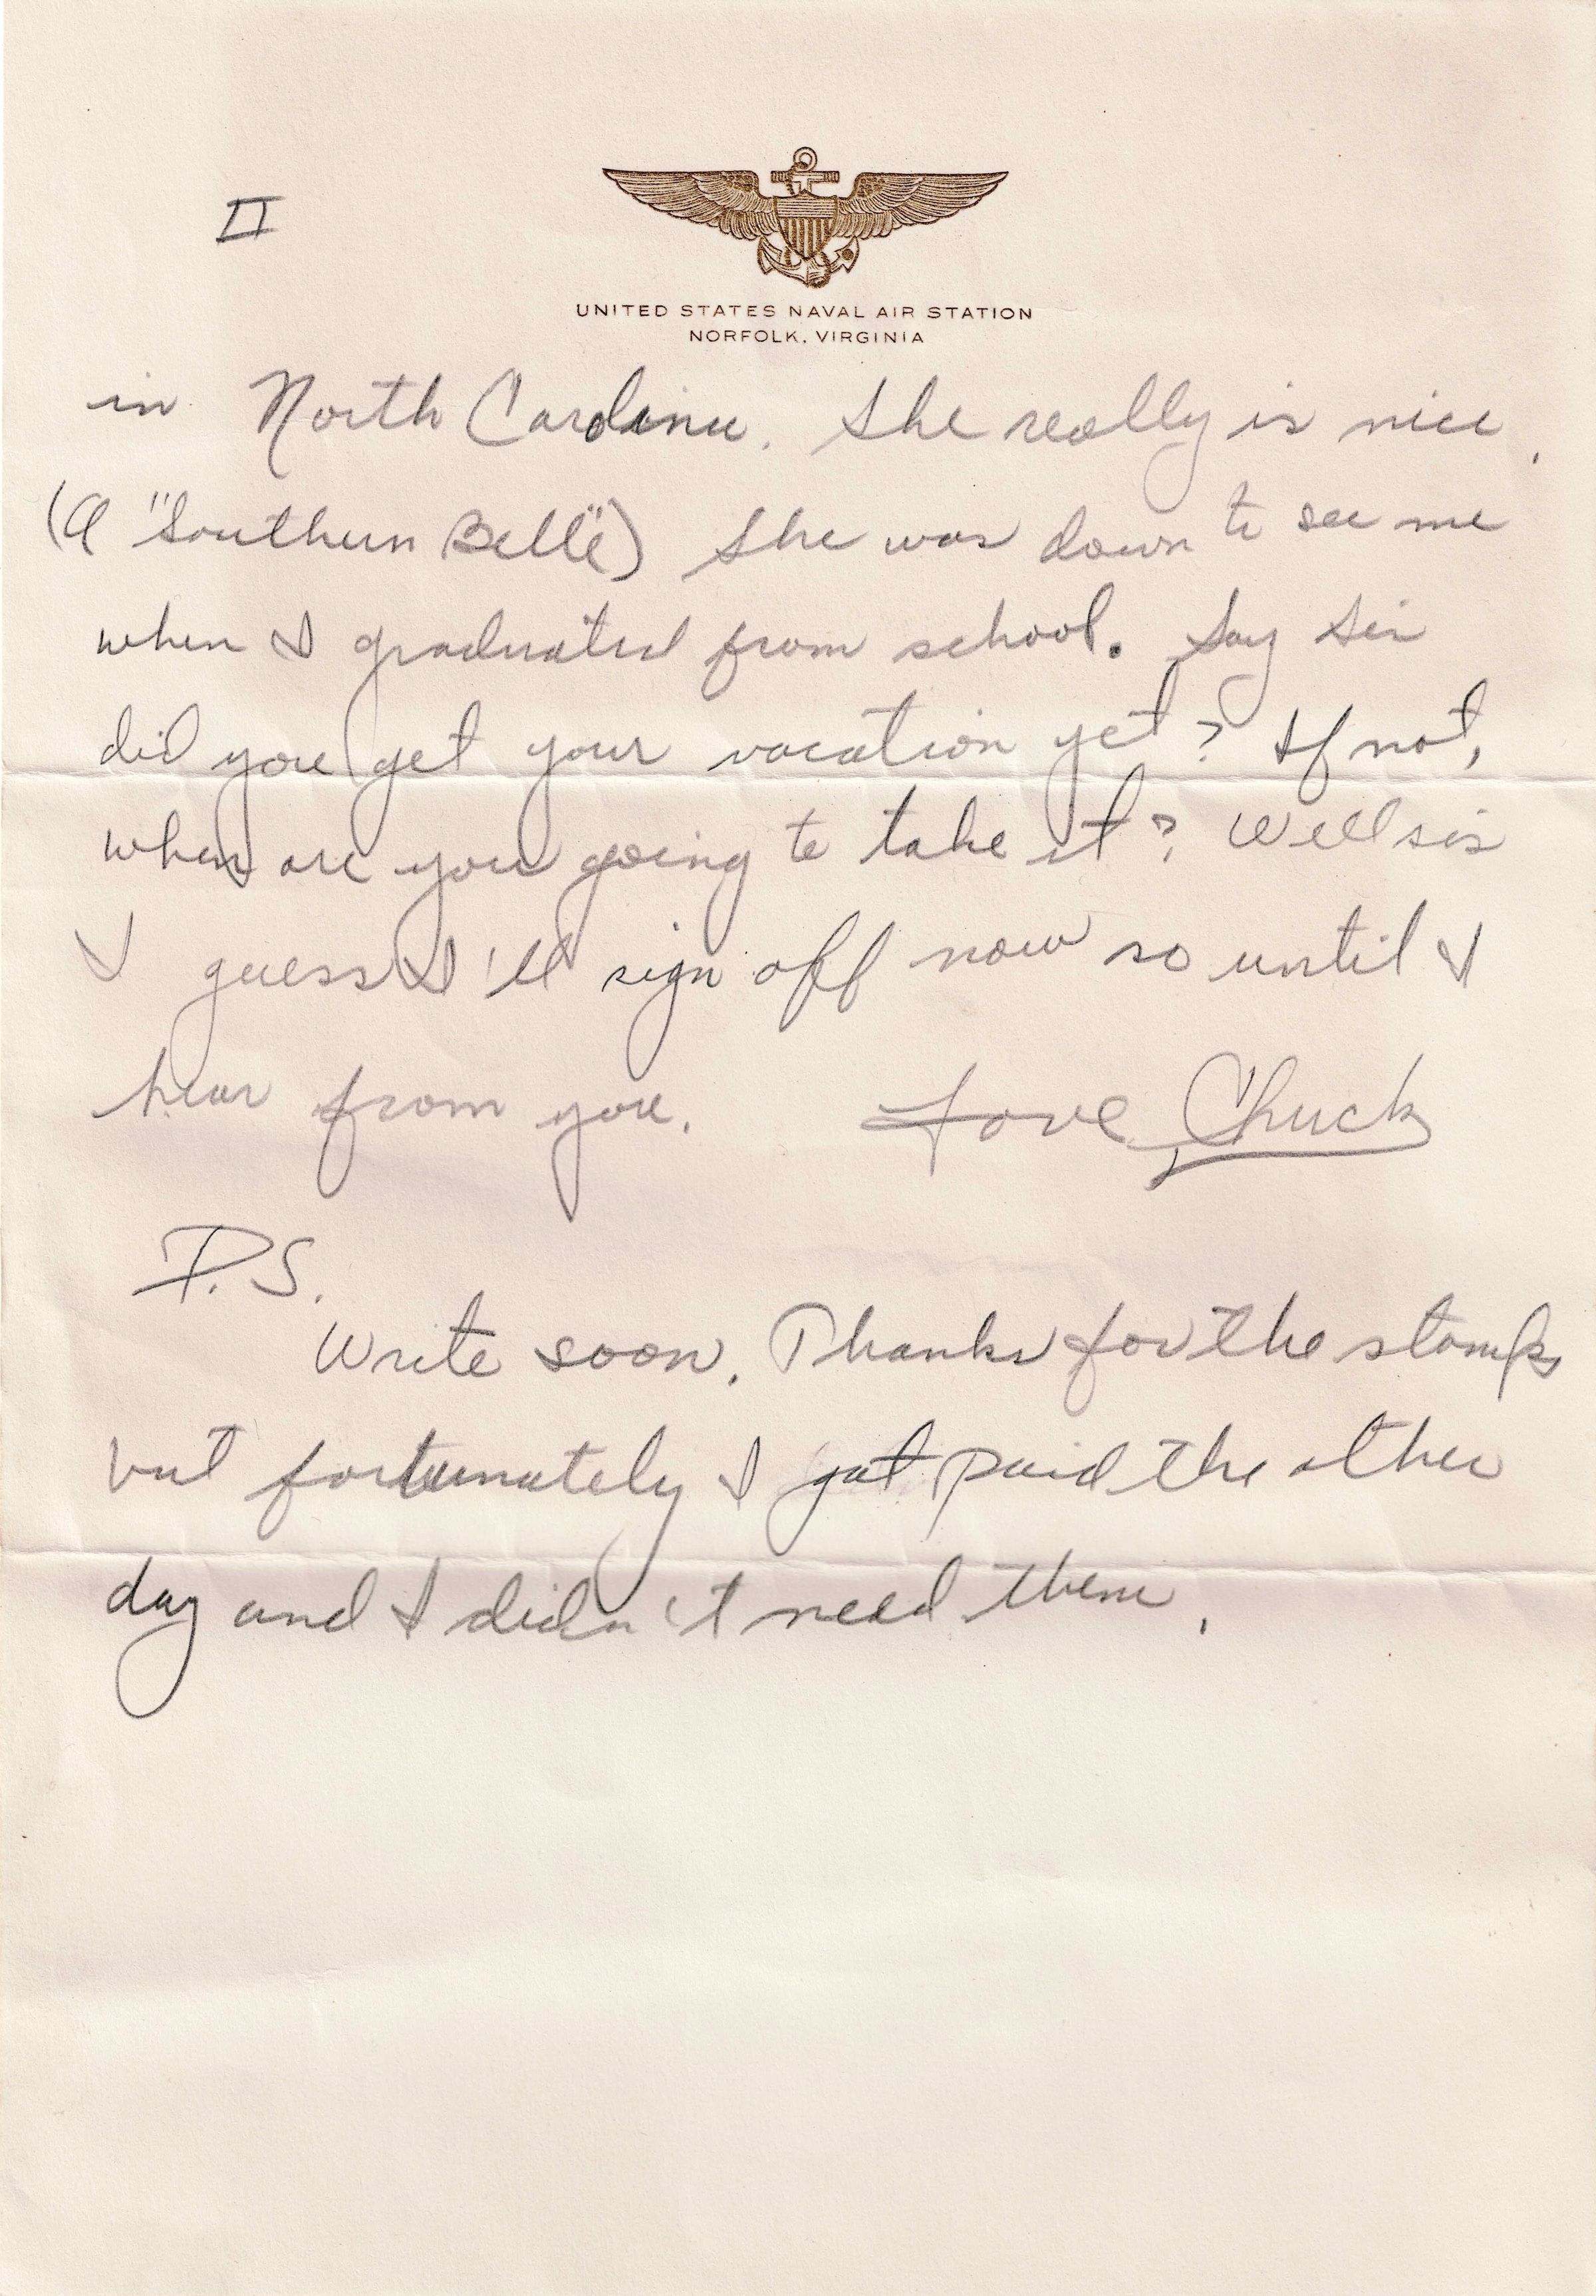 II
UNITED STATES NAVAL AIR STATION
NORFOLK, VIRGINIA
in North Carolina. She really is nice.
(A "Southern Belle") She was down to see me
when I graduated from school. Say Sis
did you get your vacation yet? If not,
when are you going to take it? Well sis
I guess I'll sign off now so until I
hear from you. Love, Chuck
P.S.
Write soon. Thanks for the stamps
but fortunately I got paid the other
day and I didn't need them.